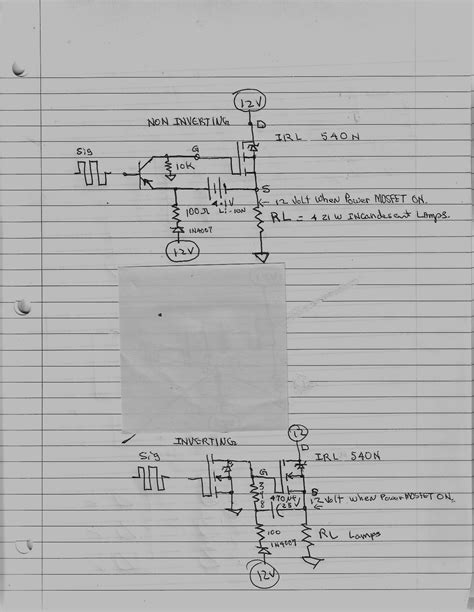 12V
D
NON INVERTING
IRL 540N
Sig
G
10K
S
4.1V
Li-ION
100Ω
12 Volt when Power MOSFET ON.
RL = 4 21W INCANdescent LAmps.
1N4007
12V
12
D
INVERTING
IRL 540N
Sig
G
470µf
25V
S
12 Volt when Power MOSFET ON.
100
RL Lamps
1N4007
12V